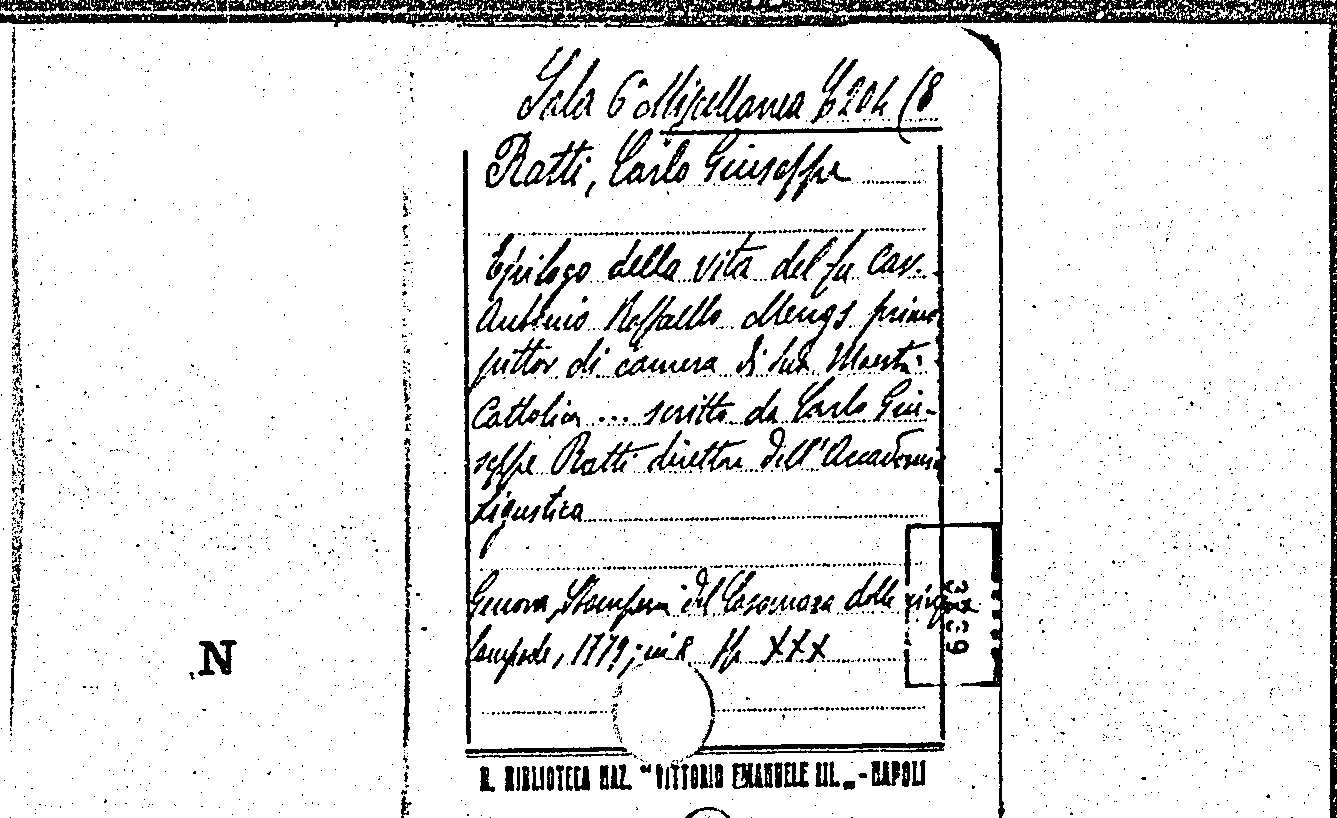 Sala 6ª Miscellanea B 204 (8
Ratti, Carlo Giuseppe
Epilogo della vita del fu Cav.
Antonio Raffaello Mengs primo
pittor di camera di sua Maestà
Cattolica ... scritto da Carlo Giu-
seppe Ratti direttore dell'Accademia
Ligustica
Genova, Stamperia del Casamara dalle cinque
lampade, 1779; in 8 pp XXX
N
R. BIBLIOTECA NAZ. "VITTORIO EMANUELE III." - NAPOLI